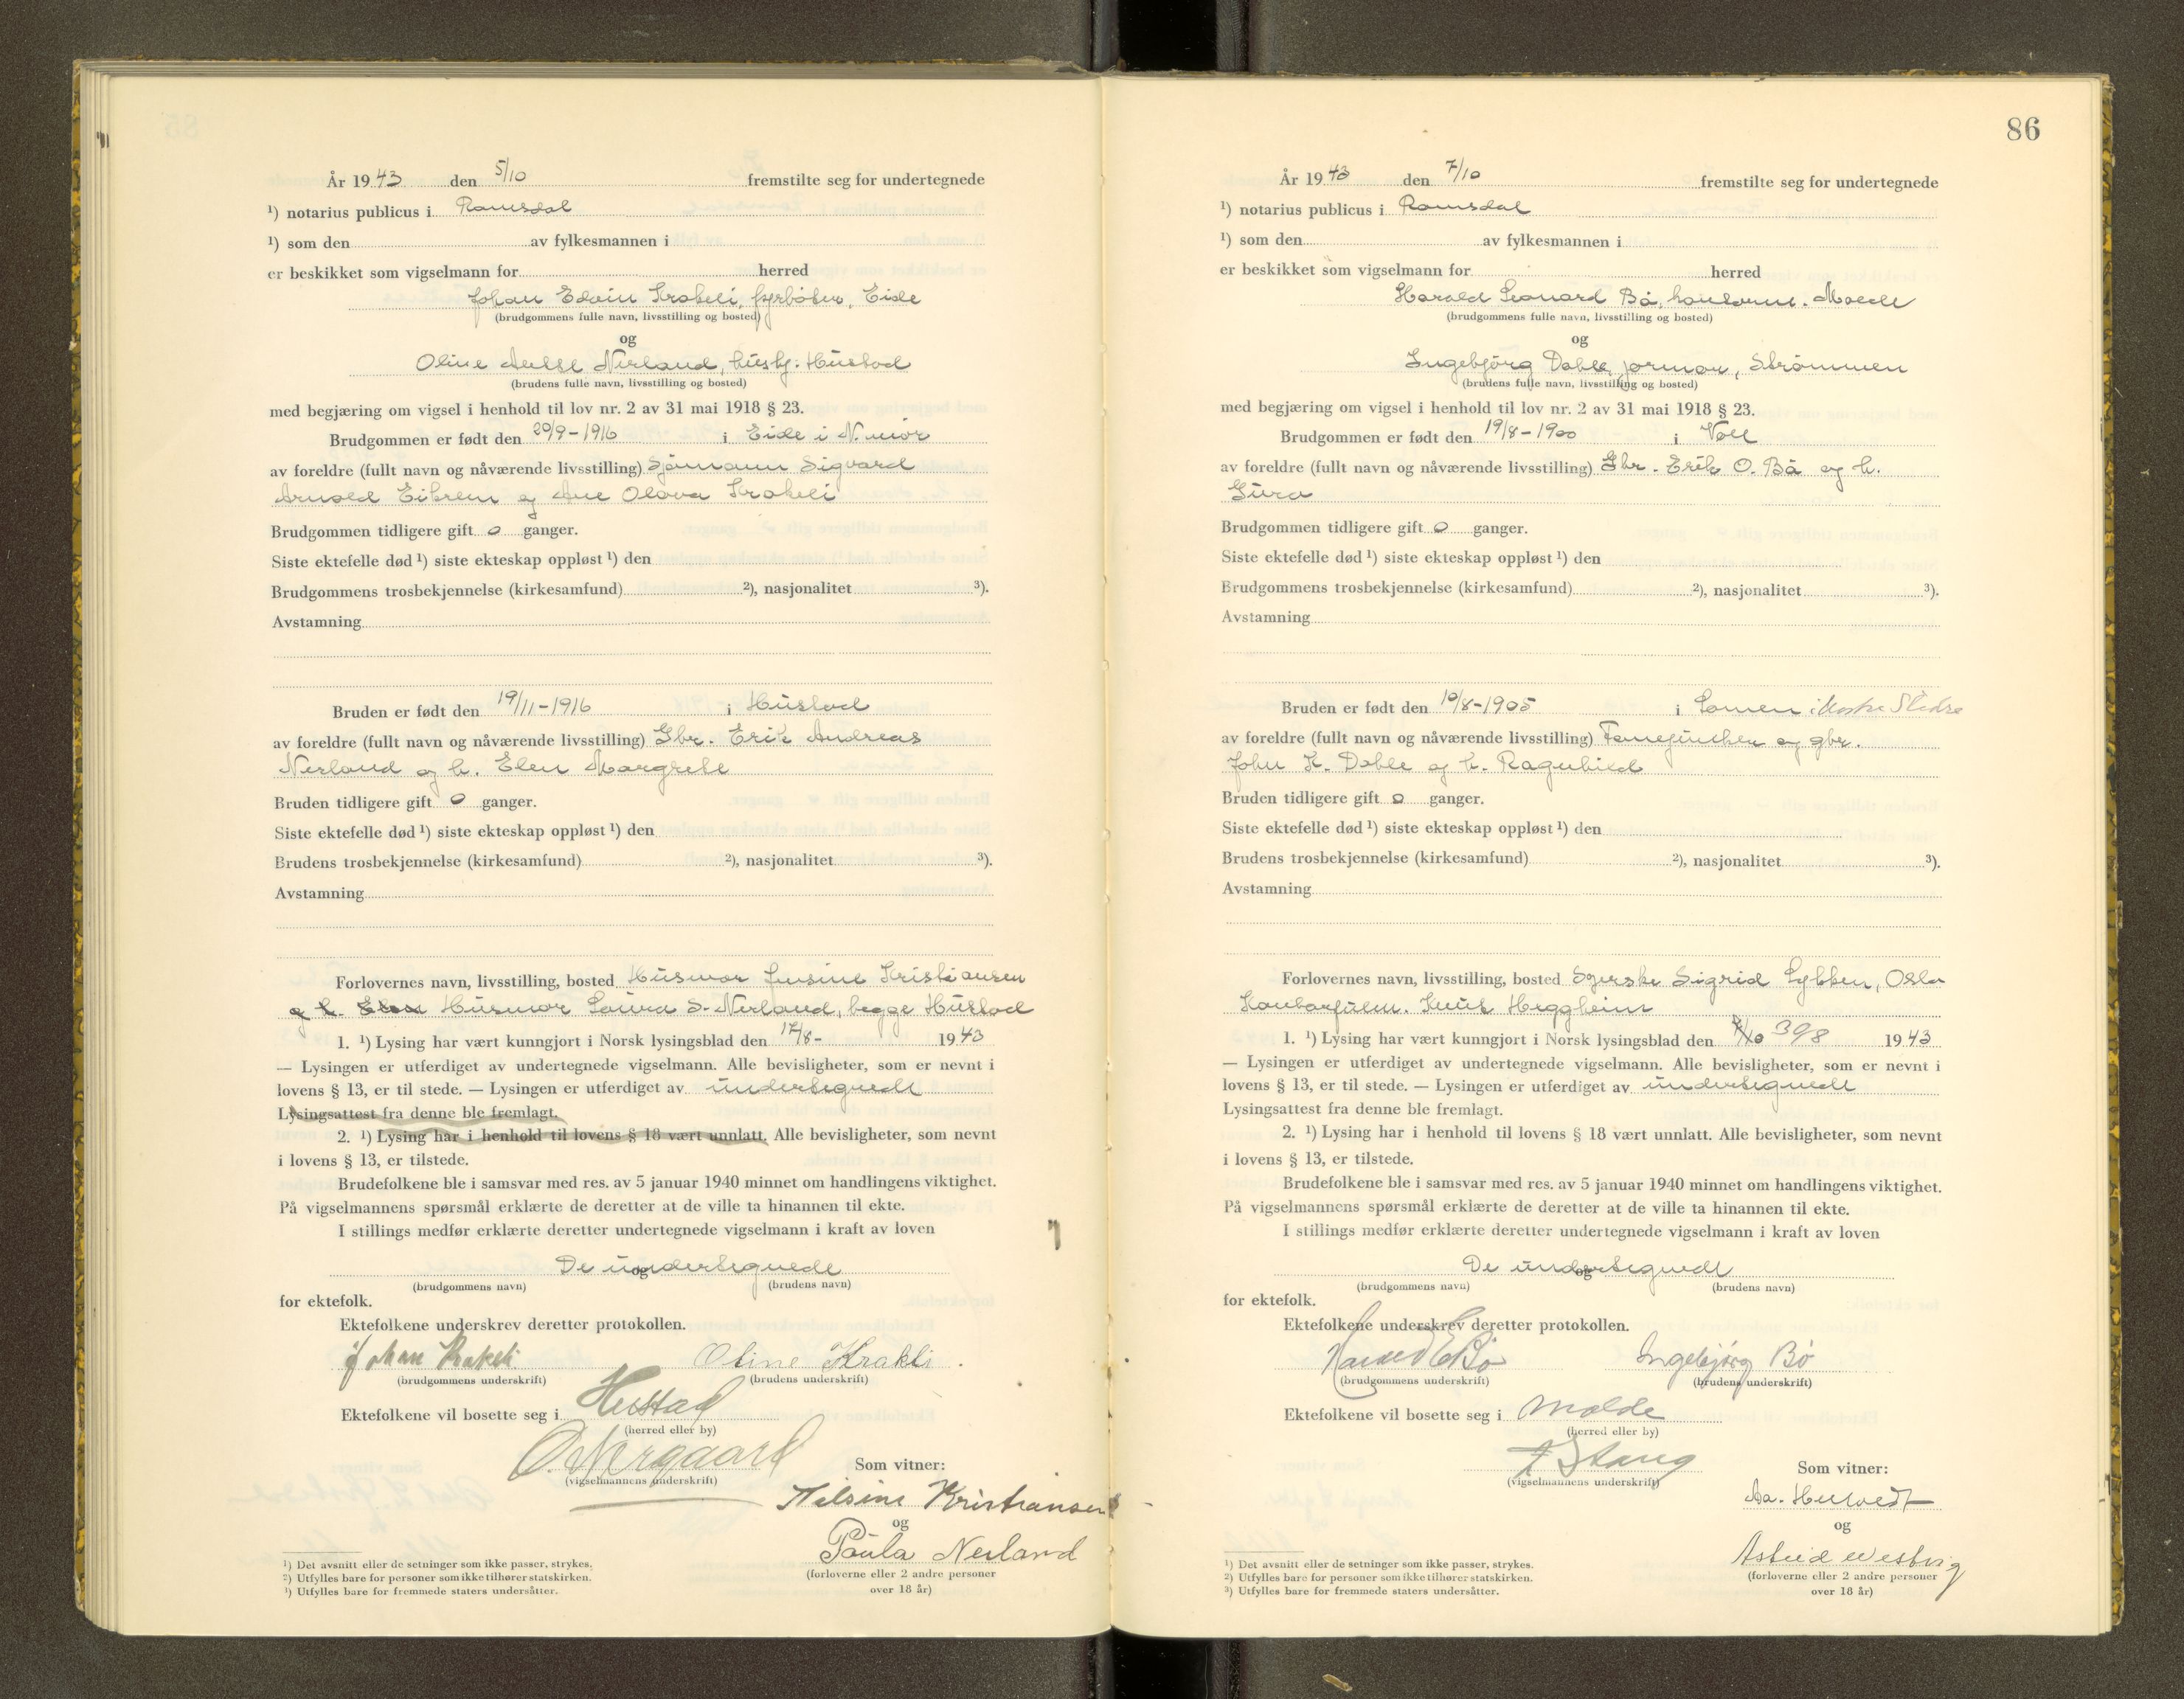 År 1943 den 5/10 fremstilte seg for undertegnede
¹) notarius publicus i Romsdal
¹) som den av fylkesmannen i
er beskikket som vigselmann for herred
Johan Edvin Krakeli, fyrbøter, Eide
(brudgommens fulle navn, livsstilling og bosted)
og
Oline Nerland, hushj. Hustad
(brudens fulle navn, livsstilling og bosted)
med begjæring om vigsel i henhold til lov nr. 2 av 31 mai 1918 § 23.
Brudgommen er født den 29/9-1916 i Eide i N.mør
av foreldre (fullt navn og nåværende livsstilling) Sjømann Sigvard
Arnold Eikrem og Ane Olava Krakeli
Brudgommen tidligere gift 0 ganger.
Siste ektefelle død ¹) siste ekteskap oppløst ¹) den
Brudgommens trosbekjennelse (kirkesamfund) ²), nasjonalitet ³).
Avstamning
Bruden er født den 19/11-1916 i Hustad
av foreldre (fullt navn og nåværende livsstilling) Gbr. Erik Andreas
Nerland og h. Elen Margrete
Bruden tidligere gift 0 ganger.
Siste ektefelle død ¹) siste ekteskap oppløst ¹) den
Brudens trosbekjennelse (kirkesamfund) ²), nasjonalitet ³).
Avstamning
Forlovernes navn, livsstilling, bosted Husmor Kristiansen
og h. Elen Husmor Laura S. Nerland, begge Hustad
1. ¹) Lysing har vært kunngjort i Norsk lysingsblad den 17/8- 1943
— Lysingen er utferdiget av undertegnede vigselmann. Alle bevisligheter, som er nevnt i
lovens § 13, er til stede. — Lysingen er utferdiget av undertegnede
Lysingsattest fra denne ble fremlagt.
2. ¹) Lysing har i henhold til lovens § 18 vært unnlatt. Alle bevisligheter, som nevnt
i lovens § 13, er tilstede.
Brudefolkene ble i samsvar med res. av 5 januar 1940 minnet om handlingens viktighet.
På vigselmannens spørsmål erklærte de deretter at de ville ta hinannen til ekte.
I stillings medfør erklærte deretter undertegnede vigselmann i kraft av loven
De undertegnede
og
(brudgommens navn) (brudens navn)
for ektefolk.
Ektefolkene underskrev deretter protokollen.
Johan Krakeli Oline Krakeli.
(brudgommens underskrift) (brudens underskrift)
Ektefolkene vil bosette seg i Hustad
(herred eller by)
O. Nergaard
(vigselmannens underskrift)
Som vitner:
Nilsine Kristiansen
og
Paula Nerland
(forloverne eller 2 andre personer
over 18 år)
¹) Det avsnitt eller de setninger som ikke passer, strykes.
²) Utfylles bare for personer som ikke tilhører statskirken.
³) Utfylles bare for fremmede staters undersåtter.
86
År 1943 den 7/10 fremstilte seg for undertegnede
¹) notarius publicus i Romsdal
¹) som den av fylkesmannen i
er beskikket som vigselmann for herred
Harald Leonard Bø, Molde
(brudgommens fulle navn, livsstilling og bosted)
og
Ingebjörg Dahle, jormor, Strömmen
(brudens fulle navn, livsstilling og bosted)
med begjæring om vigsel i henhold til lov nr. 2 av 31 mai 1918 § 23.
Brudgommen er født den 19/8-1900 i Voll
av foreldre (fullt navn og nåværende livsstilling) Gbr. Erik O. Bø og h.
Gura
Brudgommen tidligere gift 0 ganger.
Siste ektefelle død ¹) siste ekteskap oppløst ¹) den
Brudgommens trosbekjennelse (kirkesamfund) ²), nasjonalitet ³).
Avstamning
Bruden er født den 10/8-1905 i Lomen i Vestre Slidre
av foreldre (fullt navn og nåværende livsstilling) og gbr.
John K. Dahle og h. Ragnhild
Bruden tidligere gift 0 ganger.
Siste ektefelle død ¹) siste ekteskap oppløst ¹) den
Brudens trosbekjennelse (kirkesamfund) ²), nasjonalitet ³).
Avstamning
Forlovernes navn, livsstilling, bosted Syerske Sigrid Lykken, Oslo
Kontorfullm. Knut Heggheim
1. ¹) Lysing har vært kunngjort i Norsk lysingsblad den 30/8 1943
— Lysingen er utferdiget av undertegnede vigselmann. Alle bevisligheter, som er nevnt i
lovens § 13, er til stede. — Lysingen er utferdiget av undertegnede
Lysingsattest fra denne ble fremlagt.
2. ¹) Lysing har i henhold til lovens § 18 vært unnlatt. Alle bevisligheter, som nevnt
i lovens § 13, er tilstede.
Brudefolkene ble i samsvar med res. av 5 januar 1940 minnet om handlingens viktighet.
På vigselmannens spørsmål erklærte de deretter at de ville ta hinannen til ekte.
I stillings medfør erklærte deretter undertegnede vigselmann i kraft av loven
De undertegnede
og
(brudgommens navn) (brudens navn)
for ektefolk.
Ektefolkene underskrev deretter protokollen.
Harald L Bø Ingebjørg Bö
(brudgommens underskrift) (brudens underskrift)
Ektefolkene vil bosette seg i Molde
(herred eller by)
Stang
(vigselmannens underskrift)
Som vitner:
Aa.
og
Astrid Westvig
(forloverne eller 2 andre personer
over 18 år)
¹) Det avsnitt eller de setninger som ikke passer, strykes.
²) Utfylles bare for personer som ikke tilhører statskirken.
³) Utfylles bare for fremmede staters undersåtter.